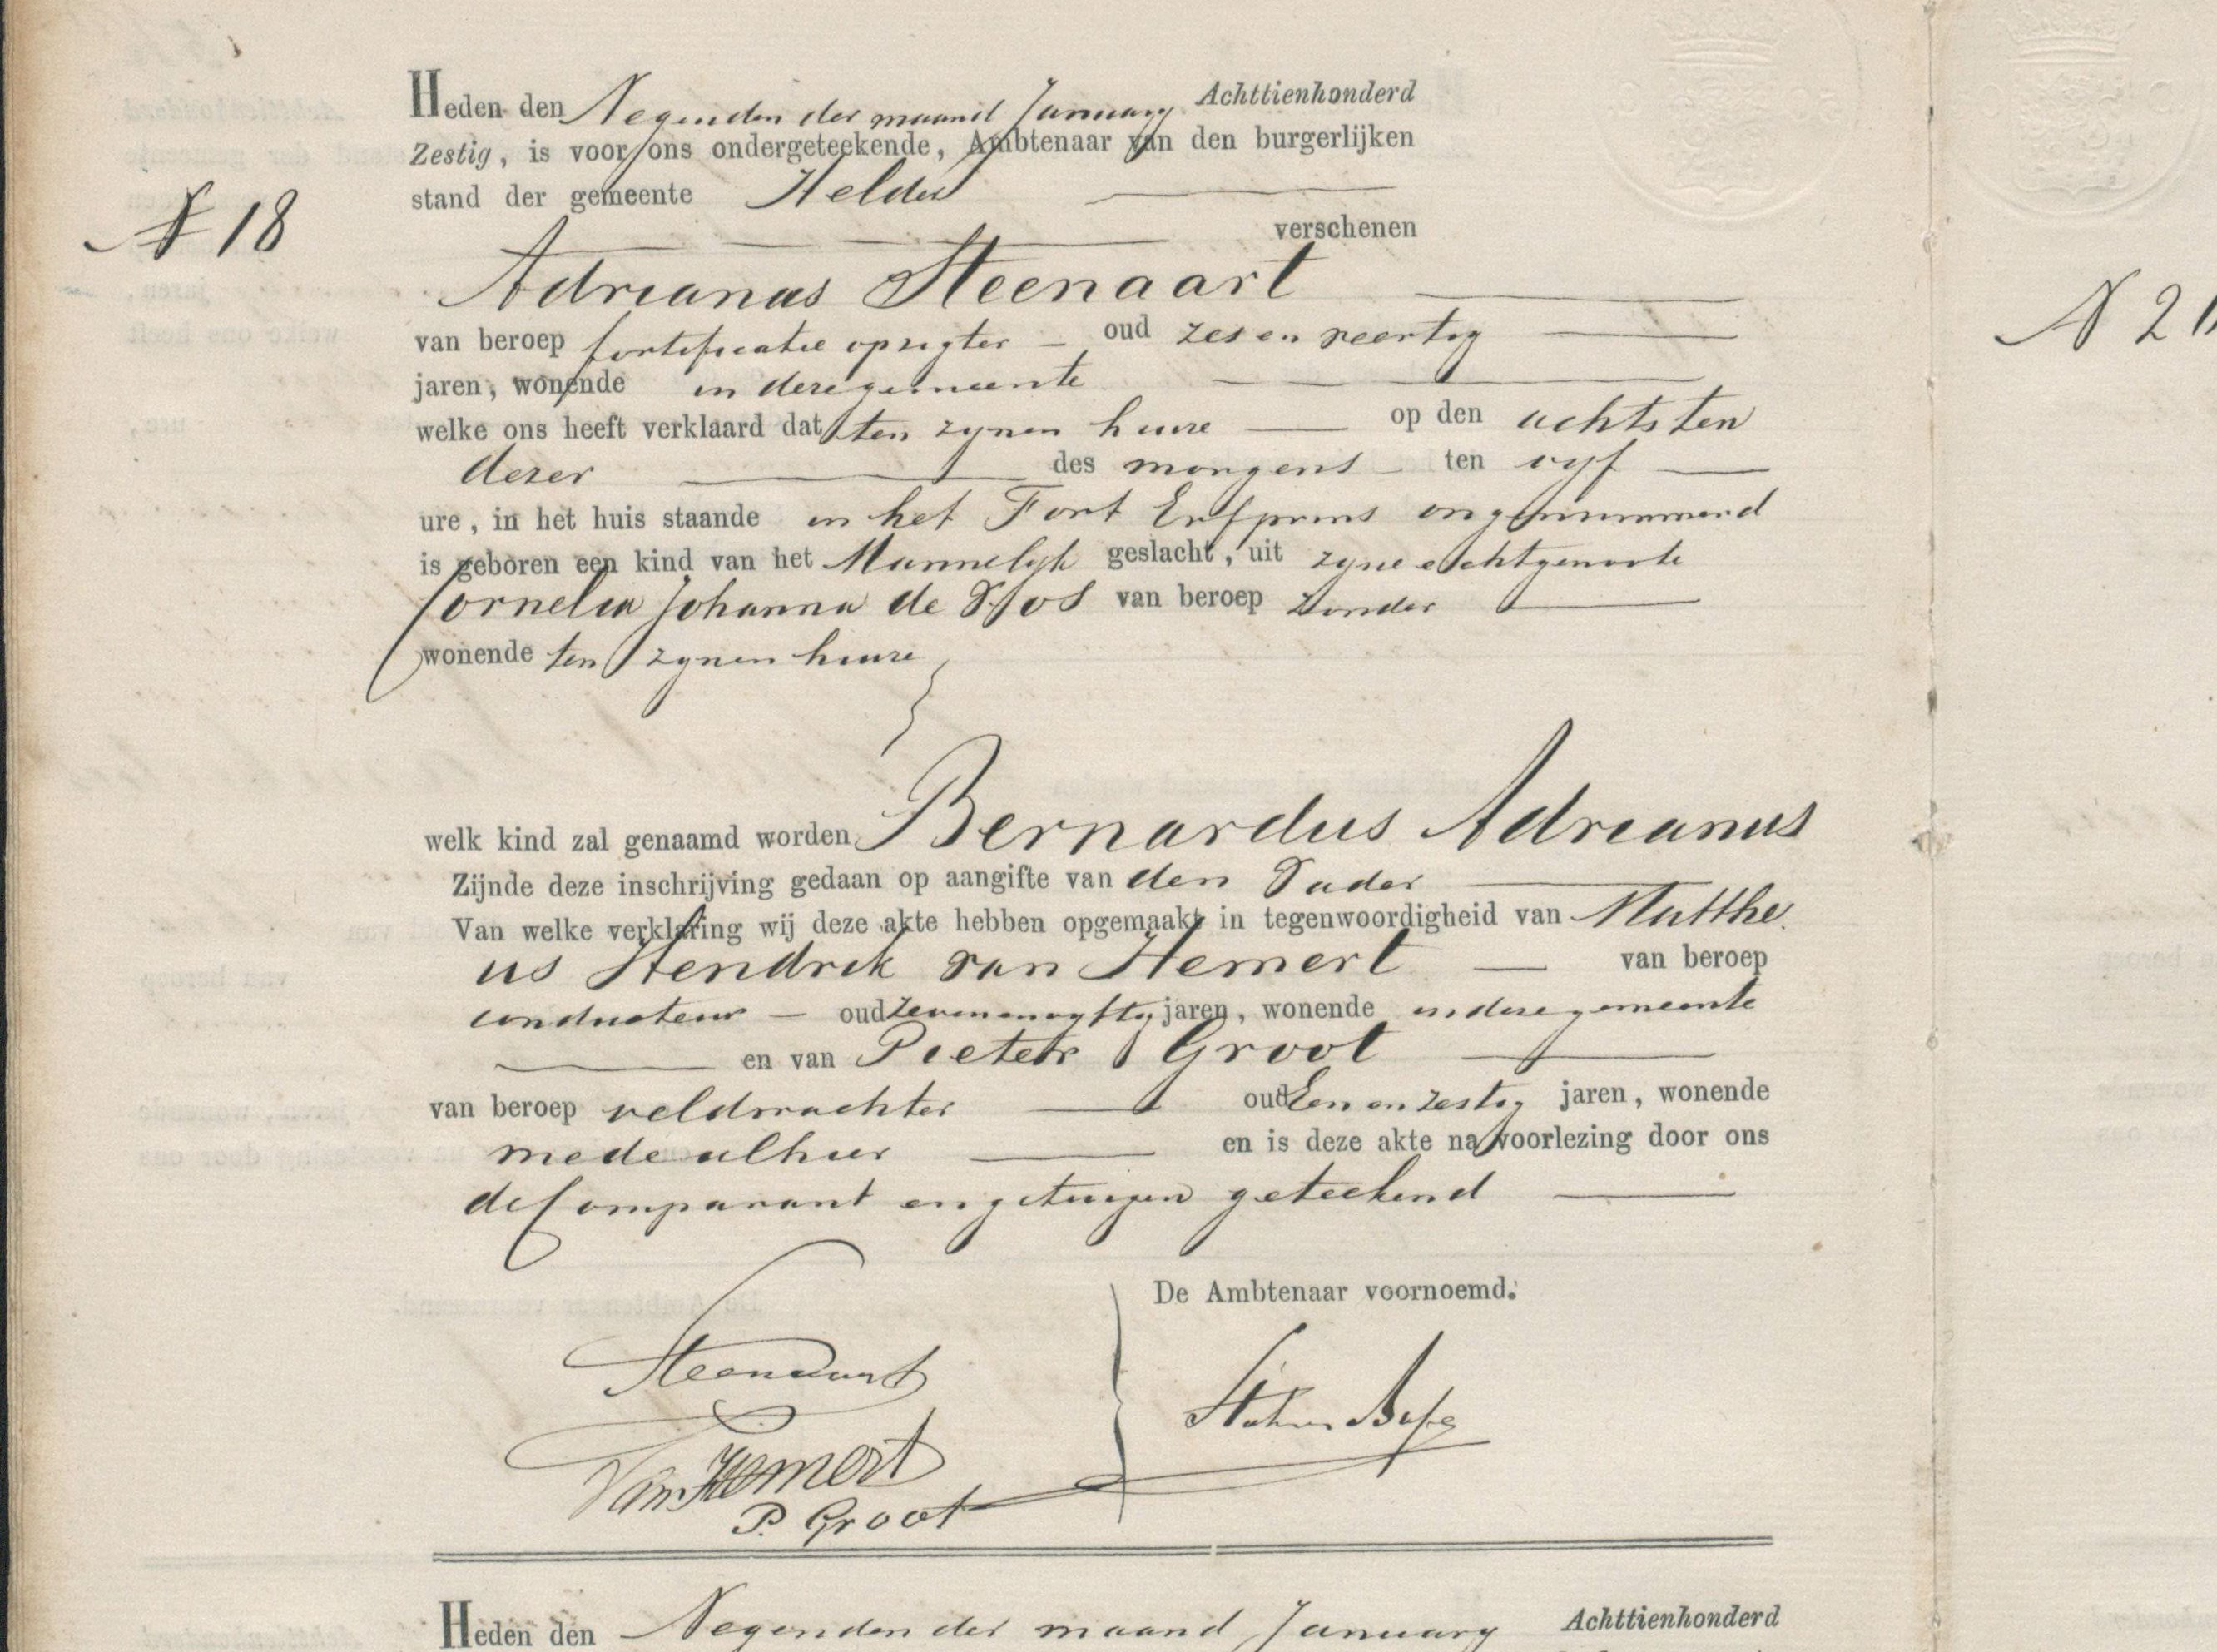 Heden den Negenden der maand January Achttienhonderd
Zestig, is voor ons ondergeteekende, Ambtenaar van den burgerlijken
stand der gemeente Helder
N 18
verschenen
Adrianus Steenaart
van beroep fortificatie opzigter oud zes en veertig
jaren, wonende in deze gemeente
welke ons heeft verklaard dat ten zynen huize op den achtsten
dezer des morgens ten vyf
ure, in het huis staande in het Fort Erfprins ongenummerd
is geboren een kind van het Mannelyk geslacht, uit zyne echtgenoote
Cornelia Johanna de Vos van beroep zonder
wonende ten zynen huize
welk kind zal genaamd worden Bernardus Adrianus
Zijnde deze inschrijving gedaan op aangifte van den Vader
Van welke verklaring wij deze akte hebben opgemaakt in tegenwoordigheid van Matthe
us Hendrik van Hemert van beroep
conducteur oud zevenenvyftig jaren, wonende in deze gemeente
en van Pieter Groot
van beroep veldwachter oud Een en zestig jaren, wonende
mede alhier en is deze akte na voorlezing door ons
de Comparant en getuigen geteekend
De Ambtenaar voornoemd.
Steenaart
Van Hemert
P. Groot
Heden den Negenden der maand January Achttienhonderd
N 2